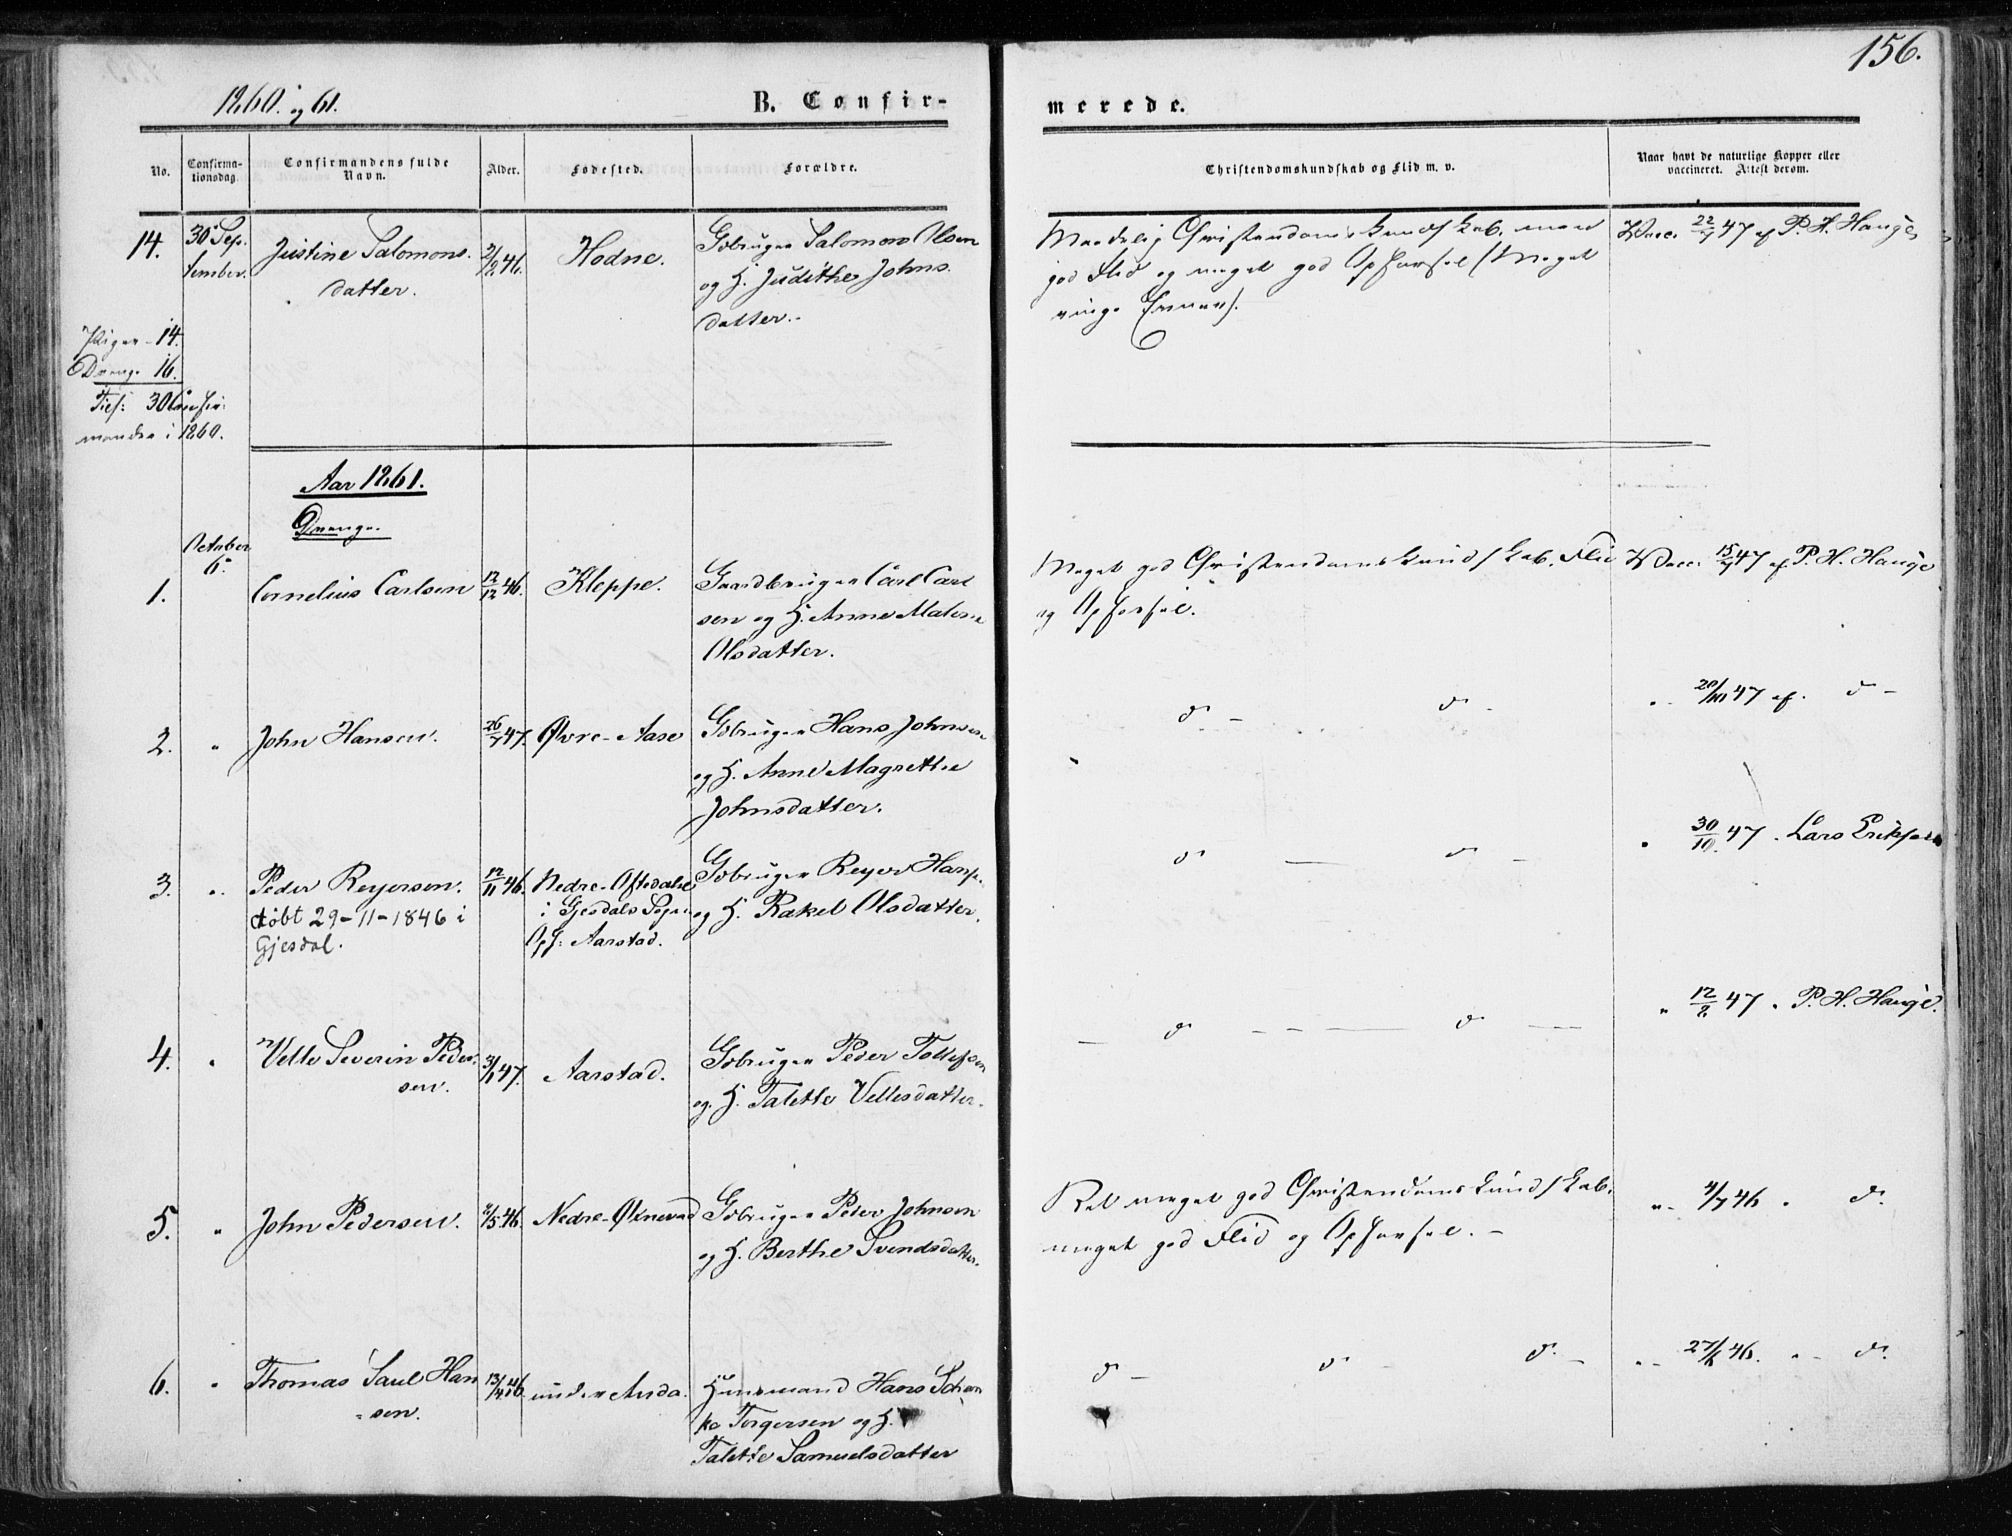 156.
1860. og 61.
B. Confir-
merede.
No.
Confirma-
tionsdag.
Confirmandens fulde
Navn.
Alder.
Fødested.
Forældre.
Christendomskundskab og Flid m. v.
Naar havt de naturlige Kopper eller
vaccineret. Attest derom.
14.
30 Sep-
tember.
Justine Salomons-
datter.
2/2 46.
Hodne.
Gdbruger Salomon Olsen
og H. Judithe Johns-
datter.
Maadelig Christendomskundskab, men
god Flid og meget god Opførsel (Meget
ringe Evner).
Vacc. 22/7 47 af P. H. Hauge
Piger 14.
Drenge 16.
Tils: 30 Confir-
mander i 1860.
Aar 1861.
Drenge.
October
6.
1.
Cornelius Carlsen
12/12 46.
Kleppe.
Gaardbruger Carl Carl
sen og H. Anne Malene
Olsdatter.
Meget god Christendomskundskab, Flid
og Opførsel.
Vacc. 15/7 47 af P. H. Hauge
2.
"
John Hansen.
26/7 47.
Øvre-Aase
Gdbruger Hans Johnsen
og H. Anne Magrethe
Johnsdatter.
d° - d° -
" 20/10 47 af. d° -
3.
"
Peder Reyersen.
døbt 29-11-1846 i
Gjesdal.
12/11 46.
Nedre-Oftedahl
i Gjesdals Sogn
Opf: Aarstad.
Gdbruger Reyer Hans.
og H. Rakel Olsdatter.
d° — d° -
" 30/10 47 " Lars Eriksen
4.
"
Velle Severin Peder-
sen.
3/1 47.
Aarstad.
Gdbruger Peder Tollefsen
og H. Talette Vellesdatter.
- d° - - — d° —
" 12/8 47 " P. H. Hauge.
5.
"
John Pedersen.
2/5 46.
Nedre-Øxnevad
Gdbruger Peder Johnsen
og H. Berthe Svendsdatter.
Ret meget god Christendomskundskab,
meget god Flid og Opførsel. -
"- 4/7 46 " d°.
6.
"
Thomas Saul Han
sen.
13/4 46
under Anda.
Huusmand Hans Schan
ke Torgersen og H.
Talette Samuelsdatter
d° - d° - d° -
"- 27/6 46. "- d°.